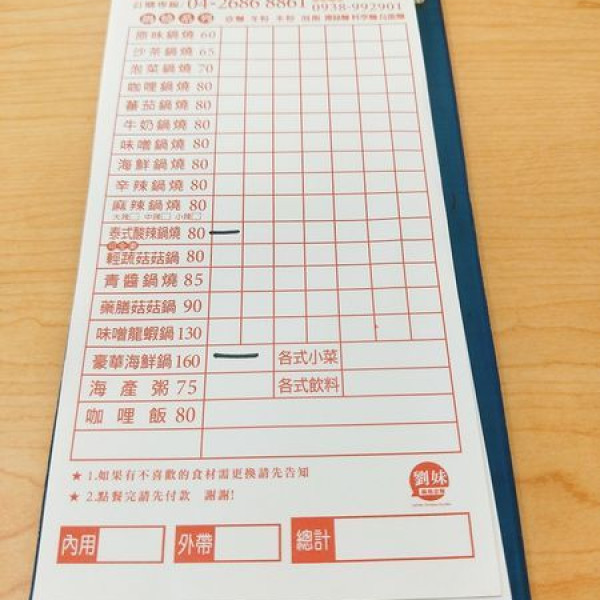 訂購專線/04-2686 8861 0938-992901
鍋燒系列 意麵 冬粉 米粉 烏龍
原味鍋燒 60
沙茶鍋燒 65
泡菜鍋燒 70
咖哩鍋燒 80
蕃茄鍋燒 80
牛奶鍋燒 80
味噌鍋燒 80
海鮮鍋燒 80
辛辣鍋燒 80
麻辣鍋燒 80
大辣 中辣 小辣
泰式酸辣鍋燒 80
輕蔬菇菇鍋 80
青醬鍋燒 85
藥膳菇菇鍋 90
味噌龍蝦鍋 130
豪華海鮮鍋 160 各式小菜
海產粥 75 各式飲料
咖哩飯 80
★ 1.如果有不喜歡的食材需更換請先告知
★ 2.點餐完請先付款 謝謝!
劉妹
內用 外帶 總計